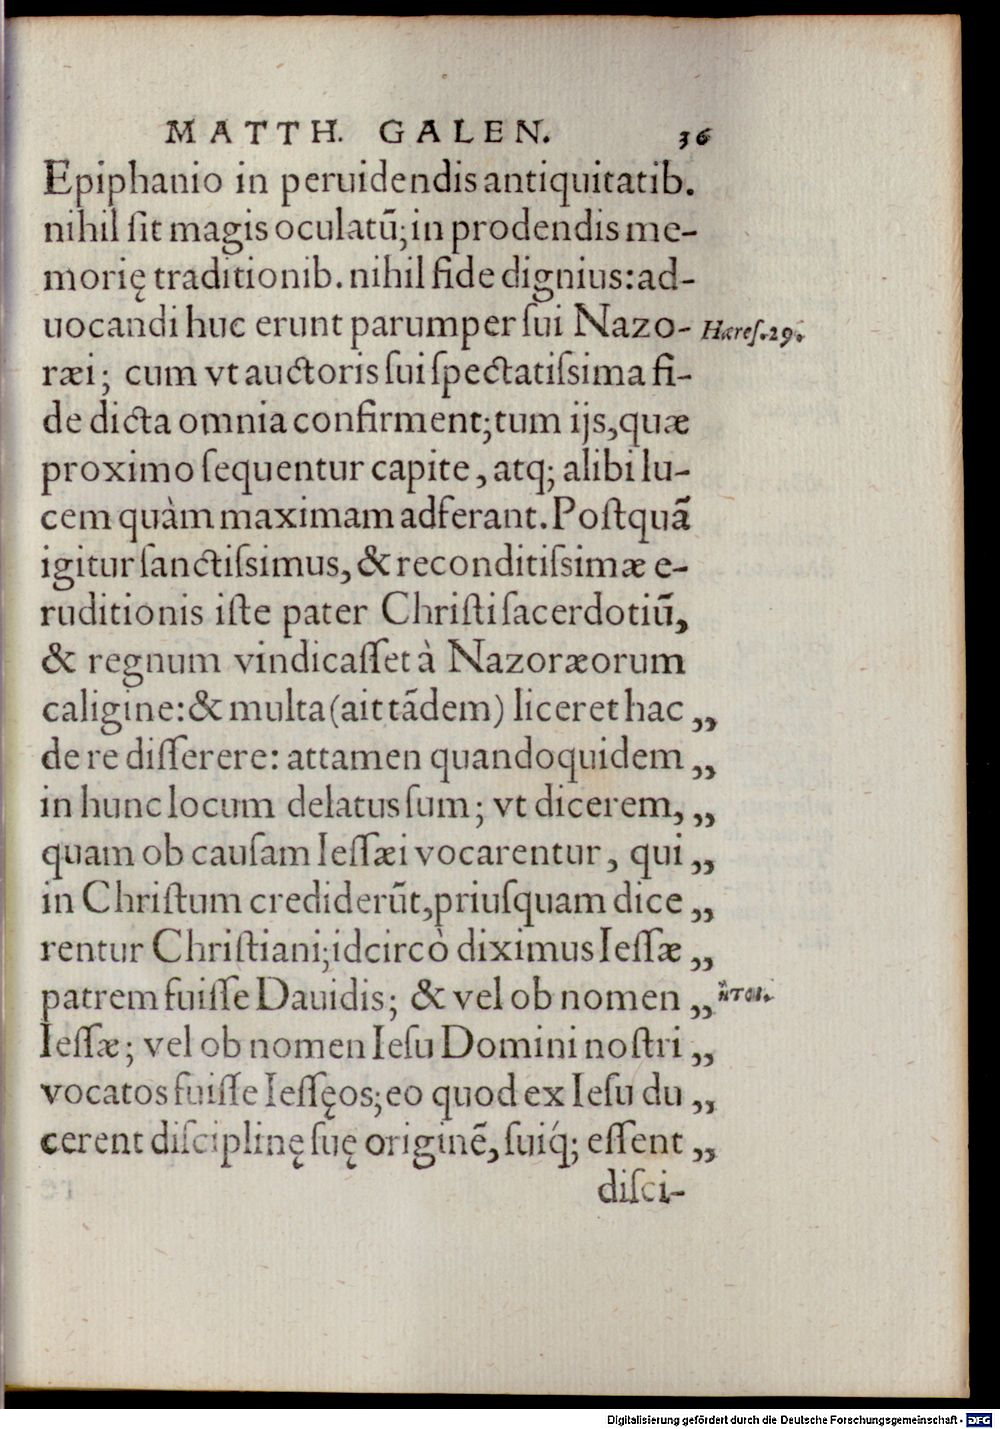 MATTH. GALEN. 36
Epiphanio in peruidendis antiquitatib.
nihil ſit magis oculatũ; in prodendis me-
morię traditionib. nihil fide dignius: ad-
uocandi huc erunt parumper ſui Nazo- Hæreſ. 29.
ræi; cum vt auctoris ſui ſpectatiſsima fi-
de dicta omnia confirment; tum ijs, quæ
proximo ſequentur capite, atq; alibi lu-
cem quàm maximam adferant. Poſtquã
igitur ſanctiſsimus, & reconditiſsimæ e-
ruditionis iſte pater Chriſti ſacerdotiũ,
& regnum vindicaſſet à Nazoræorum
caligine: & multa (ait tãdem) liceret hac „
de re diſſerere: attamen quandoquidem „
in hunc locum delatus ſum; vt dicerem, „
quam ob cauſam Ieſſæi vocarentur, qui „
in Chriſtum crediderũt, priuſquam dice „
rentur Chriſtiani; idcircò diximus Ieſſæ „
patrem fuiſſe Dauidis; & vel ob nomen „ ἤτοι.
Ieſſæ; vel ob nomen Ieſu Domini noſtri „
vocatos fuiſſe Ieſſęos; eo quod ex Ieſu du „
cerent diſciplinę ſuę originẽ, ſuiq́; eſſent „
diſci-
Digitalisierung gefördert durch die Deutsche Forschungsgemeinschaft - DFG